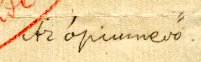 Az ópiumevő.